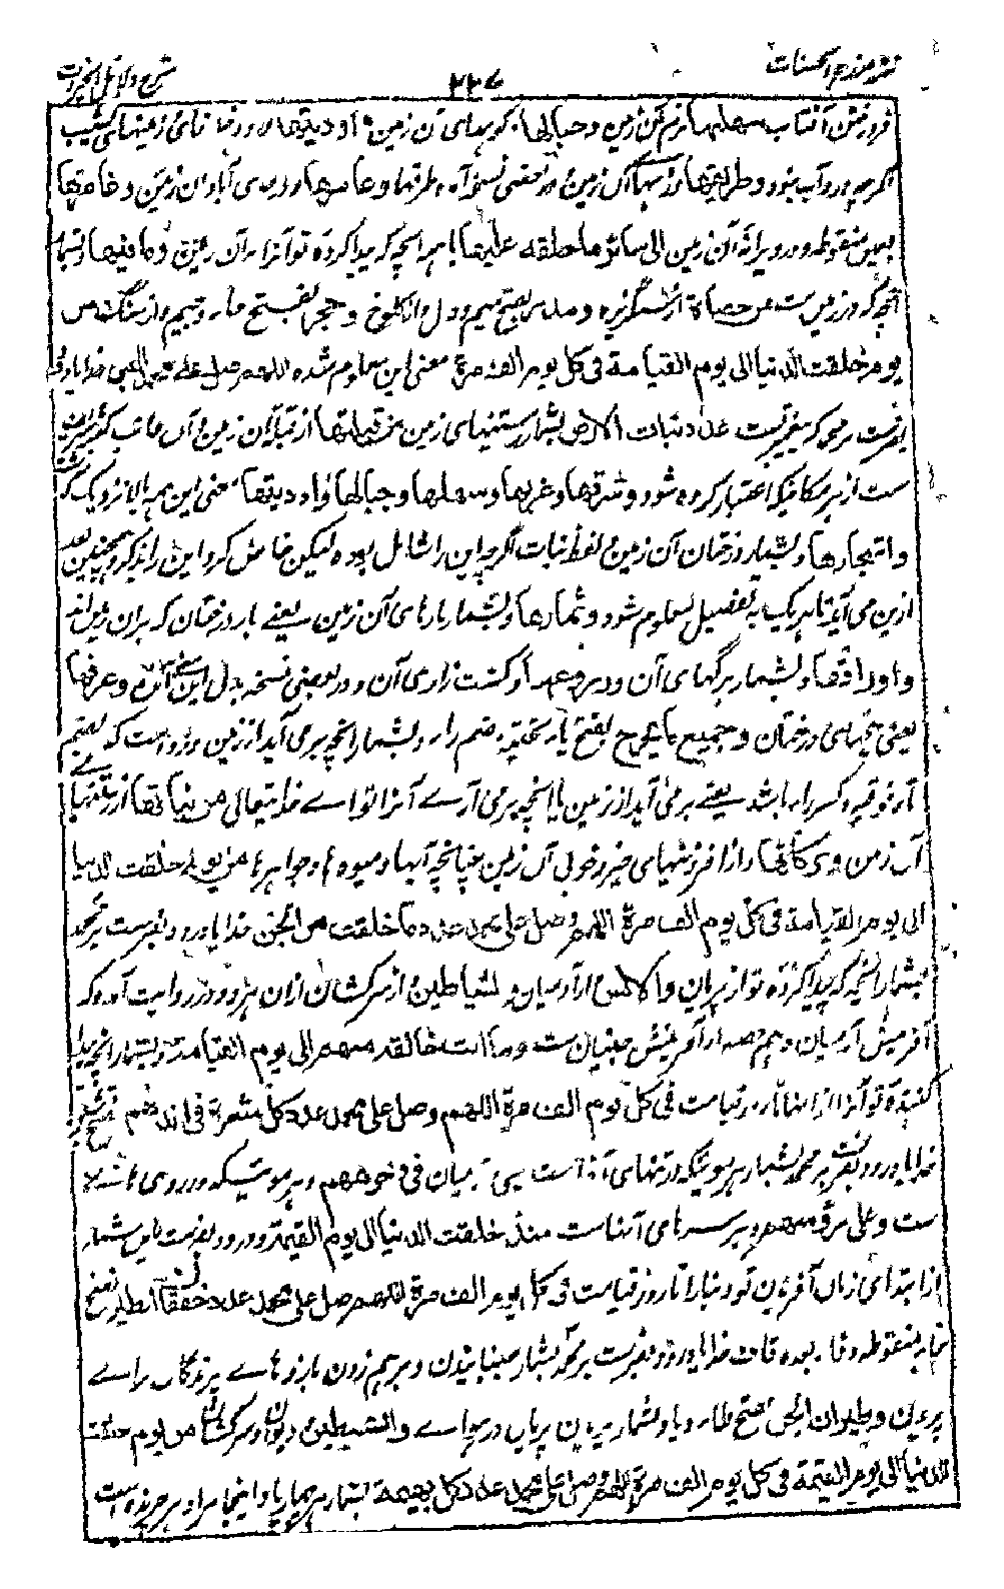 شرح دلائل الخیرات
۲۲۷
مزرع الحسنات
فرو رفتن آفتاب سهلها نرم آن زمین وجبالها کوههای آن زمین و اودیتها و رودخانهای زمینهای نشیب
اگرچه درو آب نبود وطریقها و راههای آن زمین در بعضی نسخه آمده طرقها وعامرها و درهای آبادان زمین وغامرها
بغین منقوطه و در ویرانه آن زمین الی سائر ما خلقته علیها با همه آنچه که پیدا کردهٔ تو آنرا بر آن زمین وما فیها و بشمار
آنچه که در زمین ست من حصاة از سنگریزه ومدر بفتح میم و دال از کلوخ وحجر بفتح حا و جیم و از سنگ من
یوم خلقت الدنیا الی یوم القیامة فی کل یوم الف مرة معنی این معلوم شده اللهم صل علی محمد النبی خدایا درود
بفرست بر محمد که پیغمبرست عدد نبات الارض بشمار رستنیهای زمین من قبلتها از قبلهٔ آن زمین و آن جانب
ست از هر مکانیکه اعتبار کرده شود وشرقها وغربها وسهلها وجبالها واودیتها معنی این همه بالا نزدیک گذشت
واشجارها و بشمار درختان آن زمین و لفظ نبات اگرچه این را شامل بوده لیکن خاص کرد این را بذکر و همچنین بعد
ازین می آید تا هر یک به تفصیل معلوم شود وثمارها و بشمار بارهای آن زمین یعنی بار درختان که بران زمین اند
واوراقها و بشمار برگهای آن وزروعها و کشت زارهای آن و در بعضی نسخه بدل این وعروقها
یعنی بیخهای درختان وجمیع ما یخرج بفتح یا تحتیه و ضم را و بشمار آنچه برمی آید از زمین و رواست که بضم
تا فوقیه و کسر را باشد یعنی برمی آید از زمین یا آنچه برمی آری آنرا تو ای خدایتعالی من نباتها از رستنیها
آن زمین وبرکاتها و از افزونیهای خیر و خوبی آن زمین چنانچه آبها و میوه ها و جواهر ها من یوم خلقت الدنیا
الی یوم القیامة فی کل یوم الف مرة اللهم وصل علی محمد عدد ما خلقت من الجن خدایا درود بفرست بر محمد
بشمار آنچه که پیدا کردهٔ تو از پریان والانس و از آدمیان والشیاطین و از سرکشان ازان هر دو و در روایت آمده که
آفرینش آدمیان دهم حصه از آفرینش جنیان ست وما انت خالقه منهم الی یوم القیامة و بشمار آنچه پیدا
کنندهٔ تو آنرا از ایشان تا روز قیامت فی کل یوم الف مرة اللهم وصل علی محمد عدد کل شعرة فی ابدانهم
خدایا درود بفرست بر محمد بشمار هر موئیکه در تنهای آنها است وفی وجوههم و هر موئیکه در روی آنها
ست وعلی رؤسهم و بر سرهای آنهاست منذ خلقت الدنیا الی یوم القیمة و درود بفرست باین شمار
از ابتدای زمان آفریدن تو دنیا را تا روز قیامت فی کل یوم الف مرة اللهم صل علی محمد عدد خفقان الطیر بفتح
خا منقوطه و فا بعده قاف خدایا درود بفرست بر محمد بشمار جنبانیدن و برهم زدن بازوهای پرندگان برای
پریدن وطیران الجن بفتح طا و یا و بشمار پریدن پریان در هوا والشیطین و دیوان و سرکشان من یوم خلقت
الدنیا الی یوم القیمة فی کل یوم الف مرة اللهم وصل علی محمد عدد کل بهیمة بشمار هر چارپا و اینجا مراد هر چرنده است